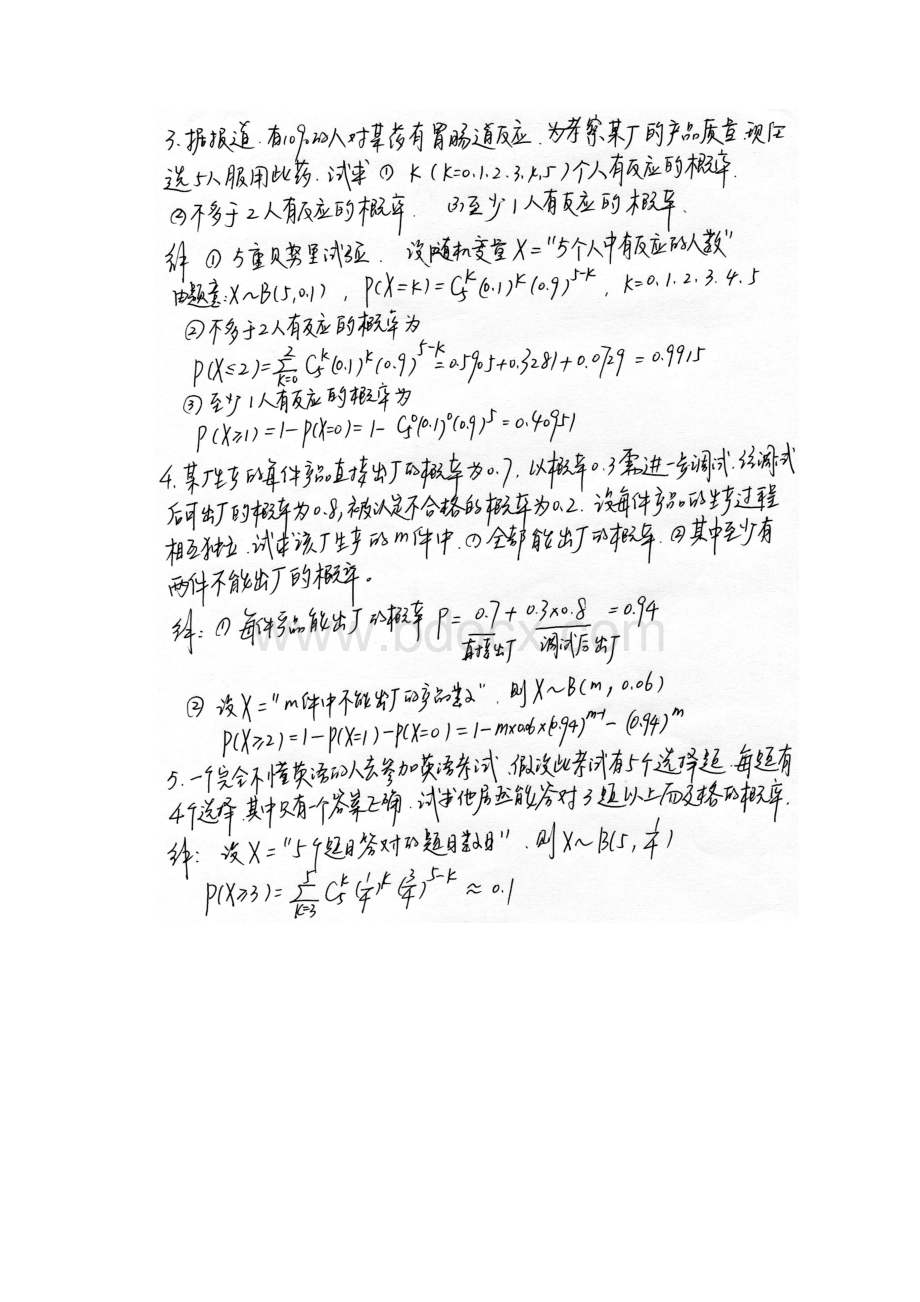 3.据报道.有10%的人对某药有胃肠道反应.为考察某厂的产品质量.现任
选5人服用此药.试求 ① K(K=0.1.2.3.4.5)个人有反应的概率.
②不多于2人有反应的概率. ③至少1人有反应的概率.
解 ① 5重贝努里试验. 设随机变量X="5个人中有反应的人数"
由题意:X~B(5,0.1), P(X=K)=C₅ᴷ(0.1)ᴷ(0.9)⁵⁻ᴷ, K=0.1.2.3.4.5
②不多于2人有反应的概率为
P(X≤2)=∑_{K=0}^{2} C₅ᴷ(0.1)ᴷ(0.9)⁵⁻ᴷ=0.5905+0.3281+0.0729=0.9915
③至少1人有反应的概率为
P(X≥1)=1-P(X=0)=1-C₅⁰(0.1)⁰(0.9)⁵=0.40951
4.某厂生产的每件产品直接出厂的概率为0.7.以概率0.3需进一步调试.经调试
后可出厂的概率为0.8,被认定不合格的概率为0.2.设每件产品的生产过程
相互独立.试求该厂生产的m件中.①全部能出厂的概率.②其中至少有
两件不能出厂的概率。
解:①每件产品能出厂的概率 P=0.7+0.3×0.8=0.94
直接出厂 调试后出厂
www.bdocx.com
② 设X="m件中不能出厂的产品数".则X~B(m,0.06)
P(X≥2)=1-P(X=1)-P(X=0)=1-m×0.06×(0.94)ᵐ⁻¹-(0.94)ᵐ
5.一个完全不懂英语的人去参加英语考试.假设此考试有5个选择题.每题有
4个选择.其中只有一个答案正确.试求他居然能答对3题以上而及格的概率.
解:设X="5个题目答对的题目数目".则X~B(5,1/4)
P(X≥3)=∑_{K=3}^{5} C₅ᴷ(1/4)ᴷ(3/4)⁵⁻ᴷ≈0.1